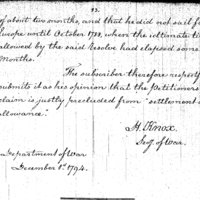 of about two months, and that he did not sail for
Europe until October 1788, when the ultimate time
allowed by the said Resolve had elapsed some
months.
The subscriber therefore respectfully
submits it as his opinion that the Petitioners
claim is justly precluded from "settlement or
allowance".
H. Knox
Secy. of War.
Department of War
December 1st 1794.